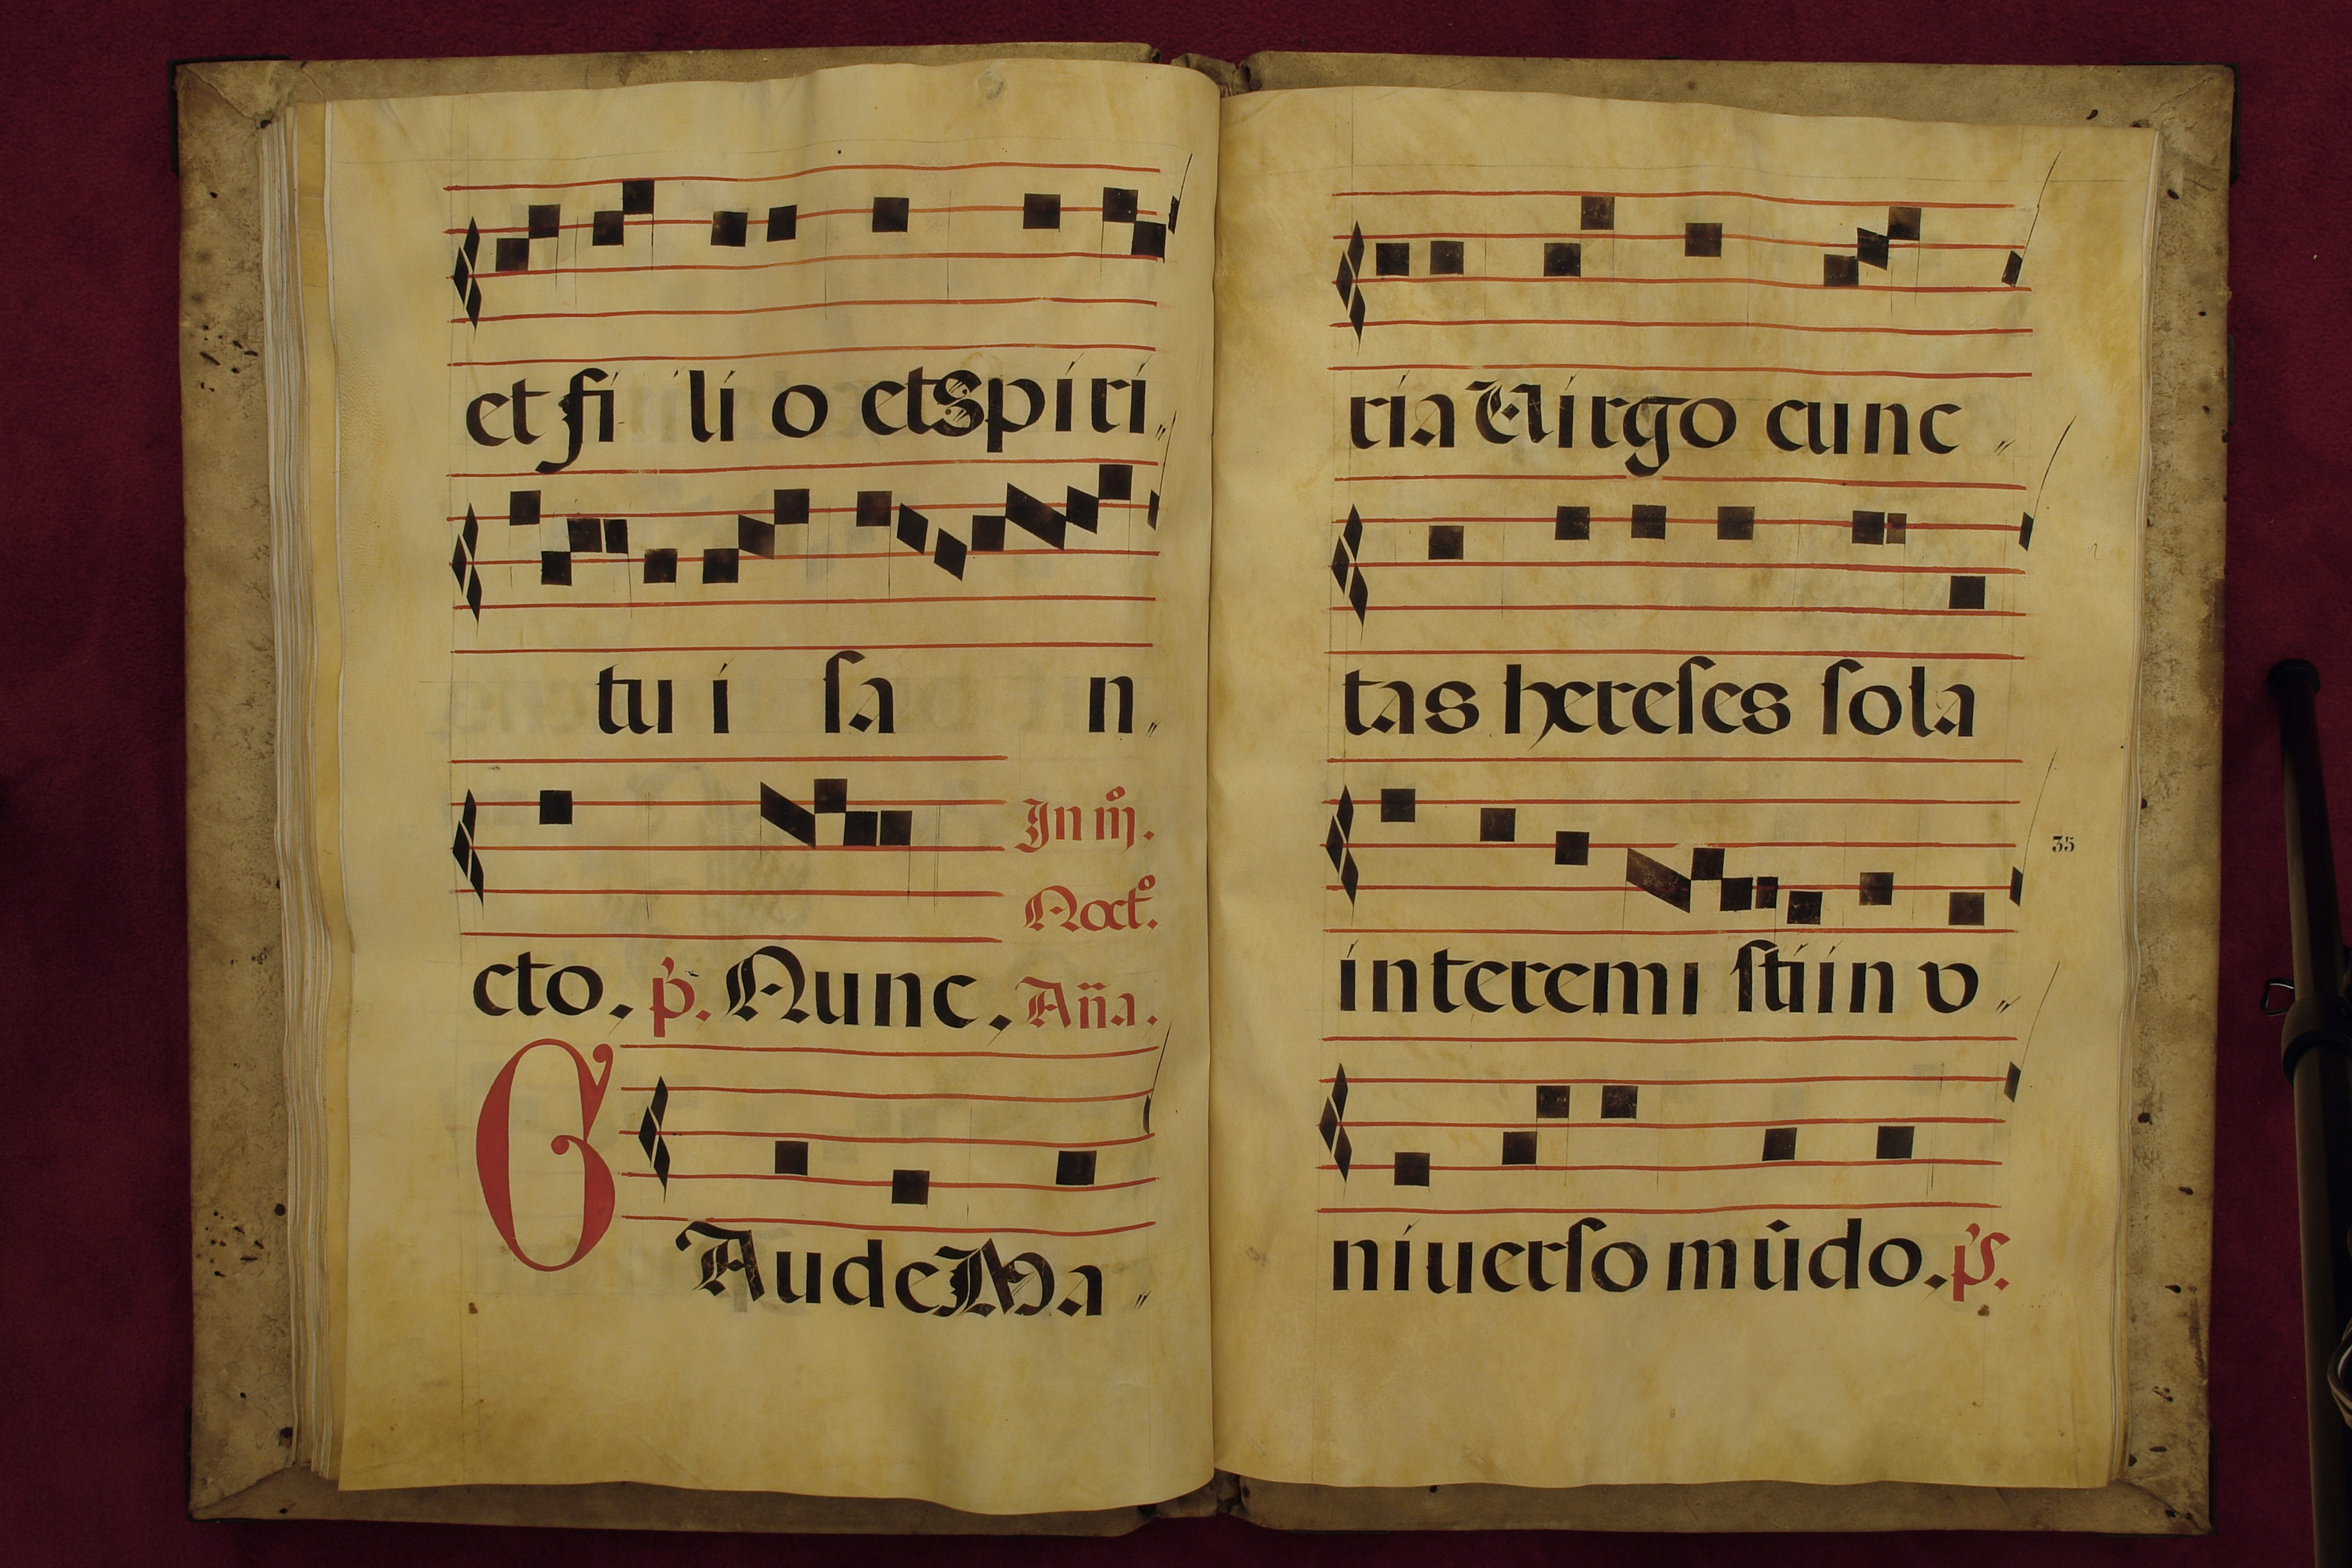 et fi li o et spiri〃
tu i ſa n〃
In m̊.
Noct̊.
cto. p̕. Nunc. Añа.
GAude Ma〃
ria Virgo cunc〃
tas hereſes ſola
35
interemiſti in v〃
niuerſo mũdo. p̕s.